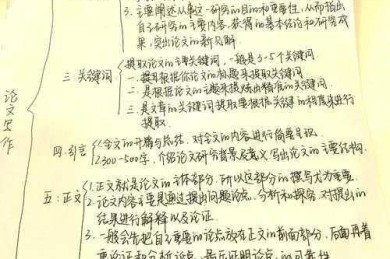 3. 主要阐述从事这一研究的目的和重要性，从而指出
自己研究的主要内容，获得的基本结论和研究成
果，突出论文的新见解.
三 关键词
提取论文的主锋关键词，一般是3-5个关键词
一是根据你论文的标题来提取关键词
二是根据论文的主题来提炼出精准的关键词
三是文章的关键词提取要根据关键词的频率来进行
提取.
论文写作
四:引言
1.全文的开篇与总结.对全文的内容进行简要导识.
2.300-500字，介绍论文研究背景及意义写出论文的主要结构.
五:正文
1.正文就是论文的主体部分.所以这部分的撰写尤为重要.
2.论文内容主要是通过提出问题论点.分析和探究.对提出的
结果进行解释以及论证.
3.一般会先把自己重要的论点放在正文的前面部分.后面再着
重论证和分析论点.最后证明论点的可靠性